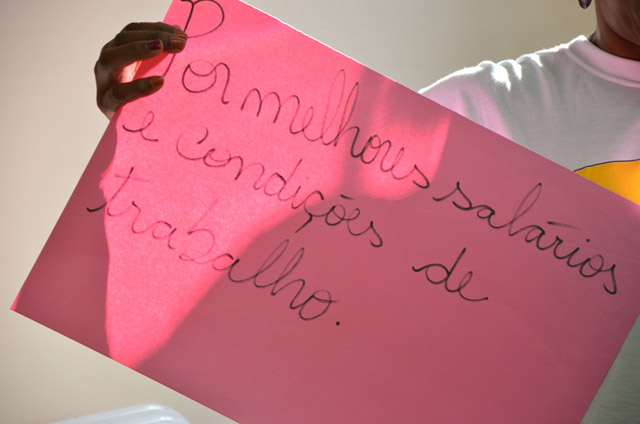 Por melhores salários
e condições de
trabalho.